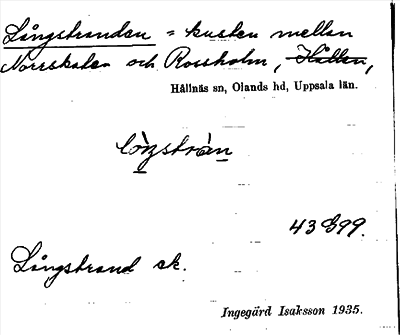 Långstranden = kusten mellan
Norrskaten och Rossholm, Hållen,
Hållnäs sn, Olands hd, Uppsala län.
43 G99.
Långstrand ek.
Ingegärd Isaksson 1935.